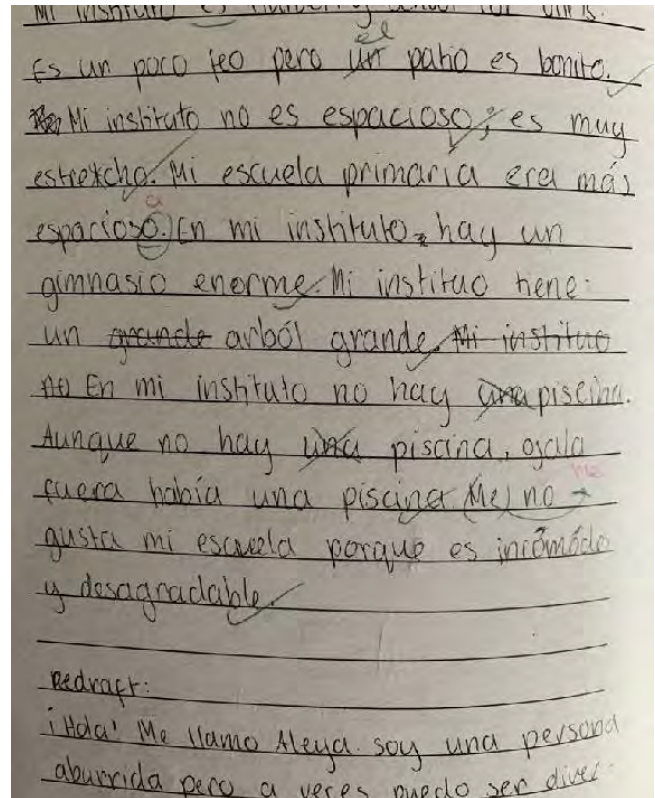 Mi instituto es
él
Es un poco feo pero un patio es bonito.
Mi instituto no es espacioso; es muy
estrexcho. Mi escuela primaria era más
a
espacioso. En mi instituto, hay un
gimnasio enorme. Mi instituo tiene:
un grande arból grande. Mi instituo
no En mi instituto no hay una piscina.
Aunque no hay una piscina, ojala
me
fuera había una piscina (Me) no
gusta mi escuela porque es incómodo
y desagradable.
Redraft:
¡Hola! Me llamo Aleya. soy una persona
aburrida pero a veces puedo ser diver